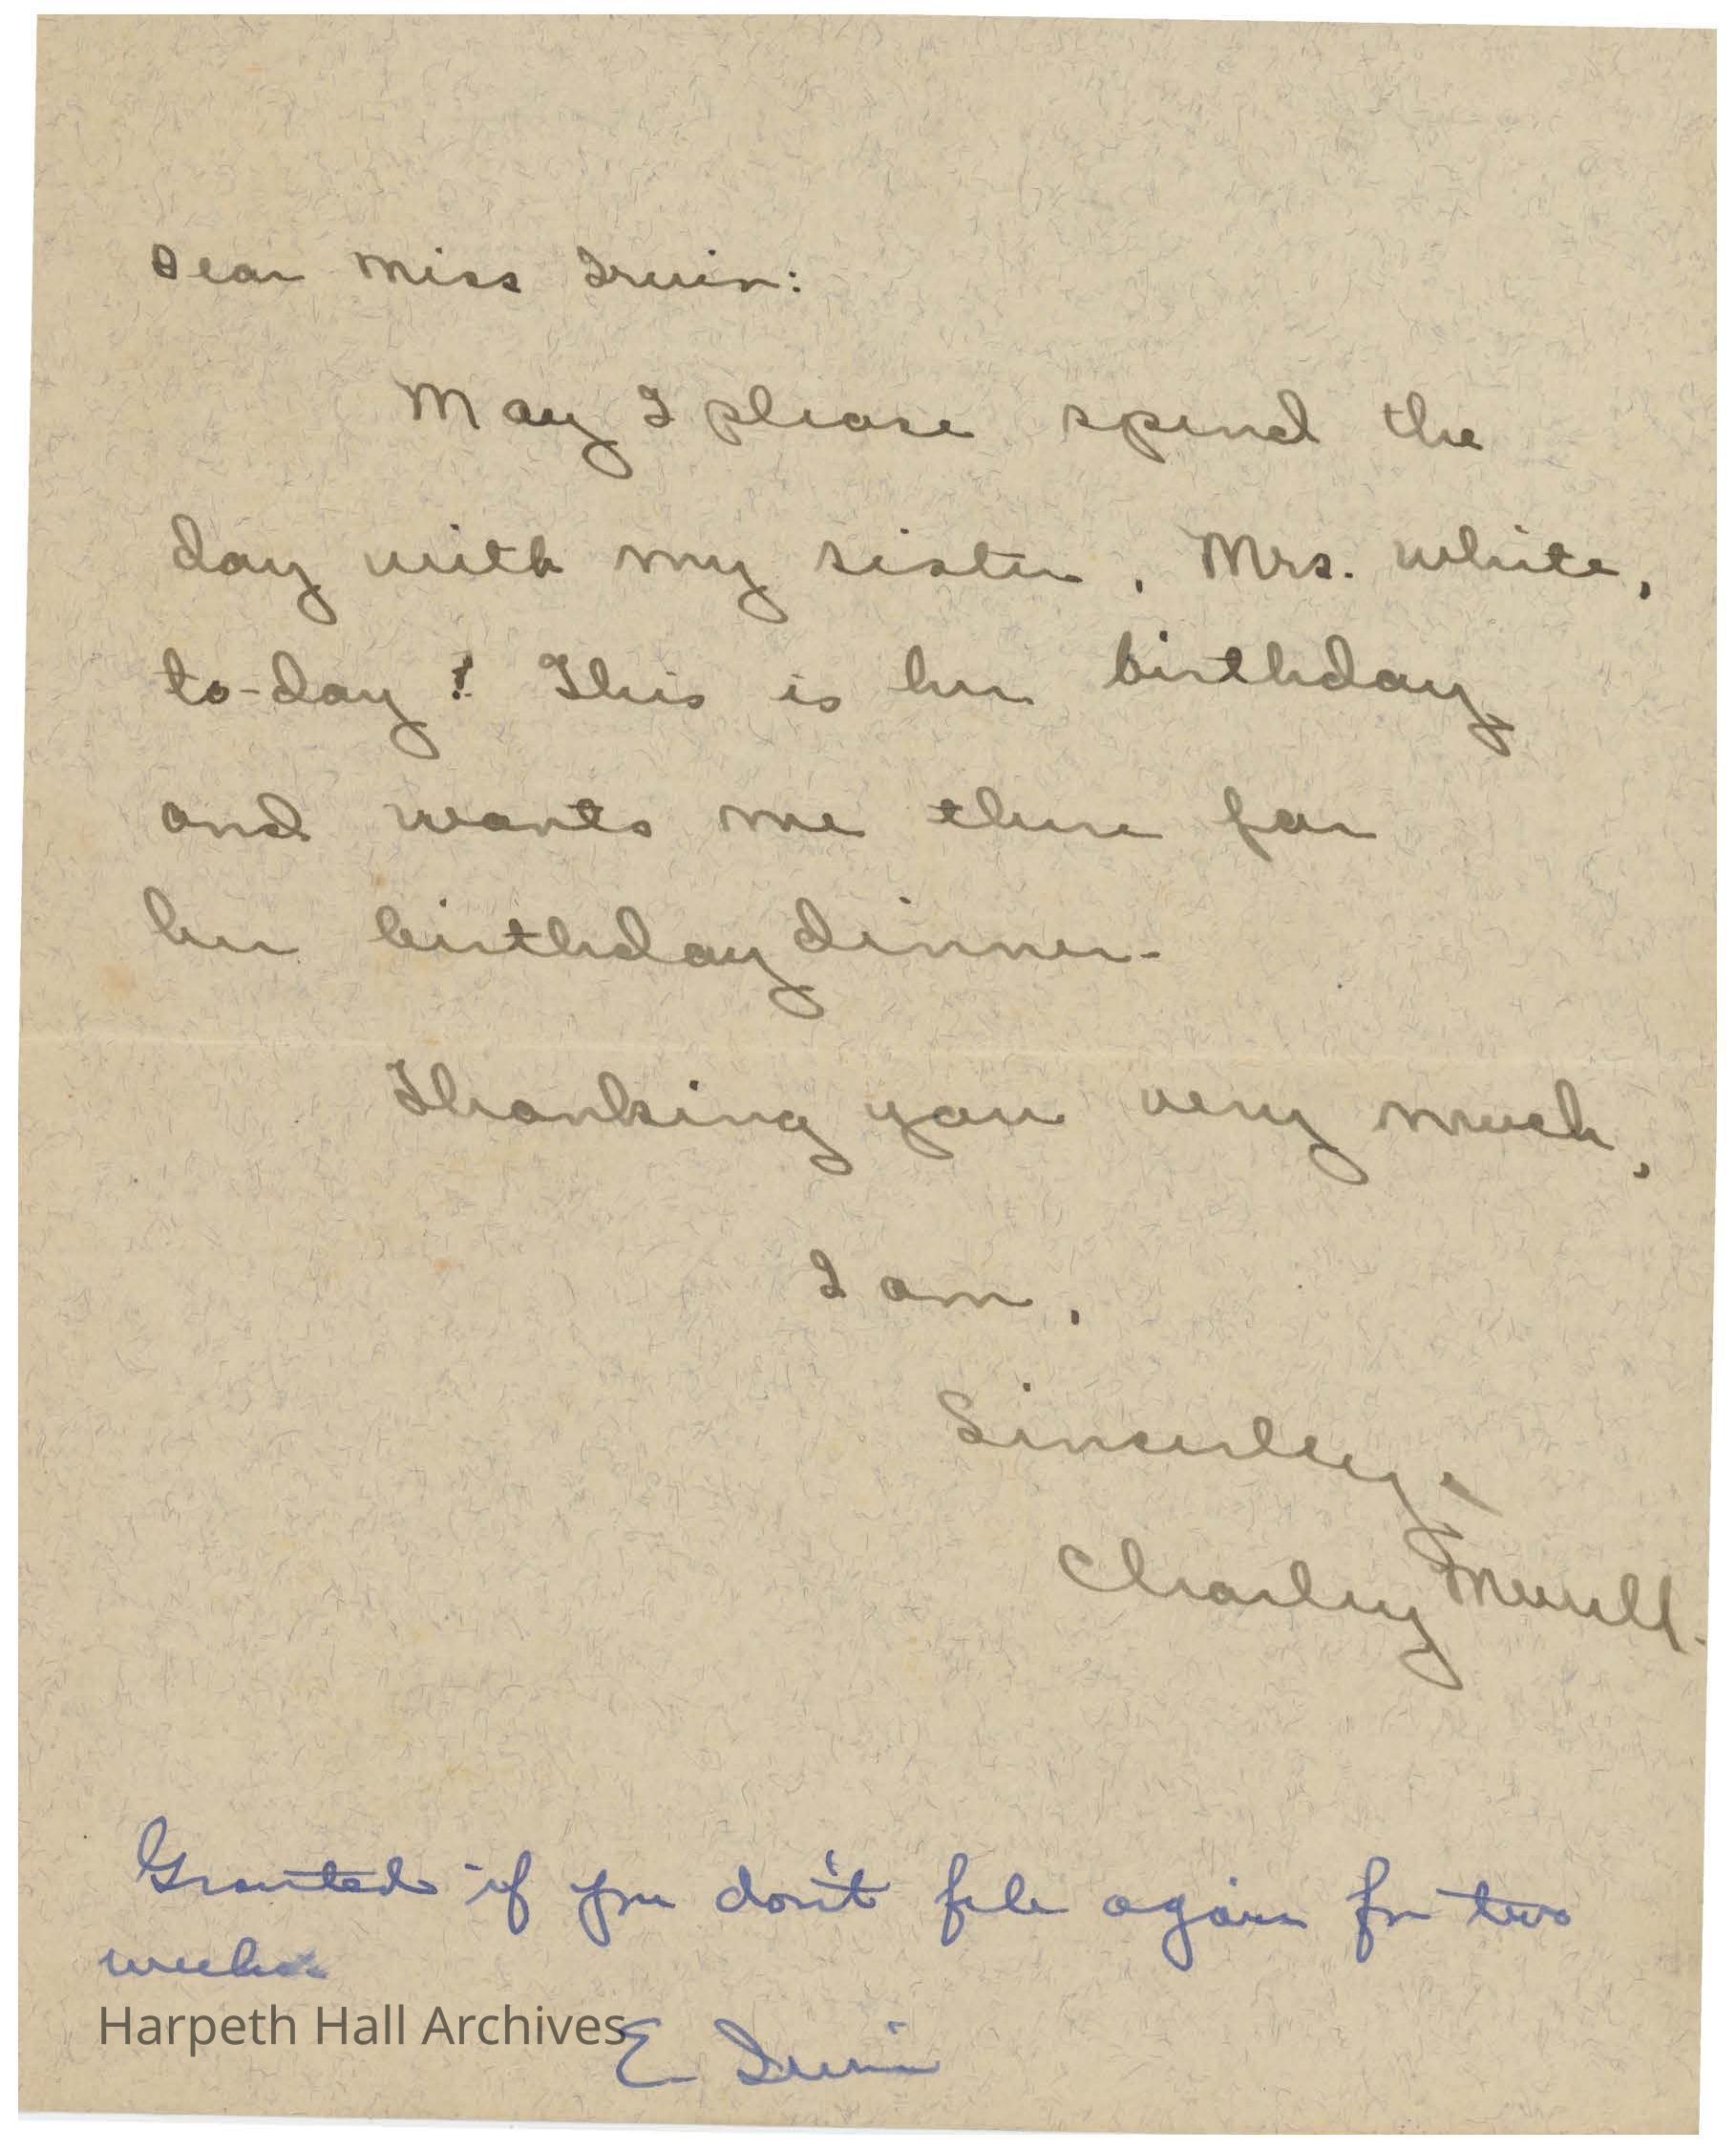 Dear Miss Irwin:
May I please spend the
day with my sister, Mrs. White,
to-day? This is her birthday
and wants me there for
her birthday dinner.
Thanking you very much,
I am,
Sincerely,
Charley Murrell.
Granted if you don't file again for two
weeks
Harpeth Hall Archives
E Irwin